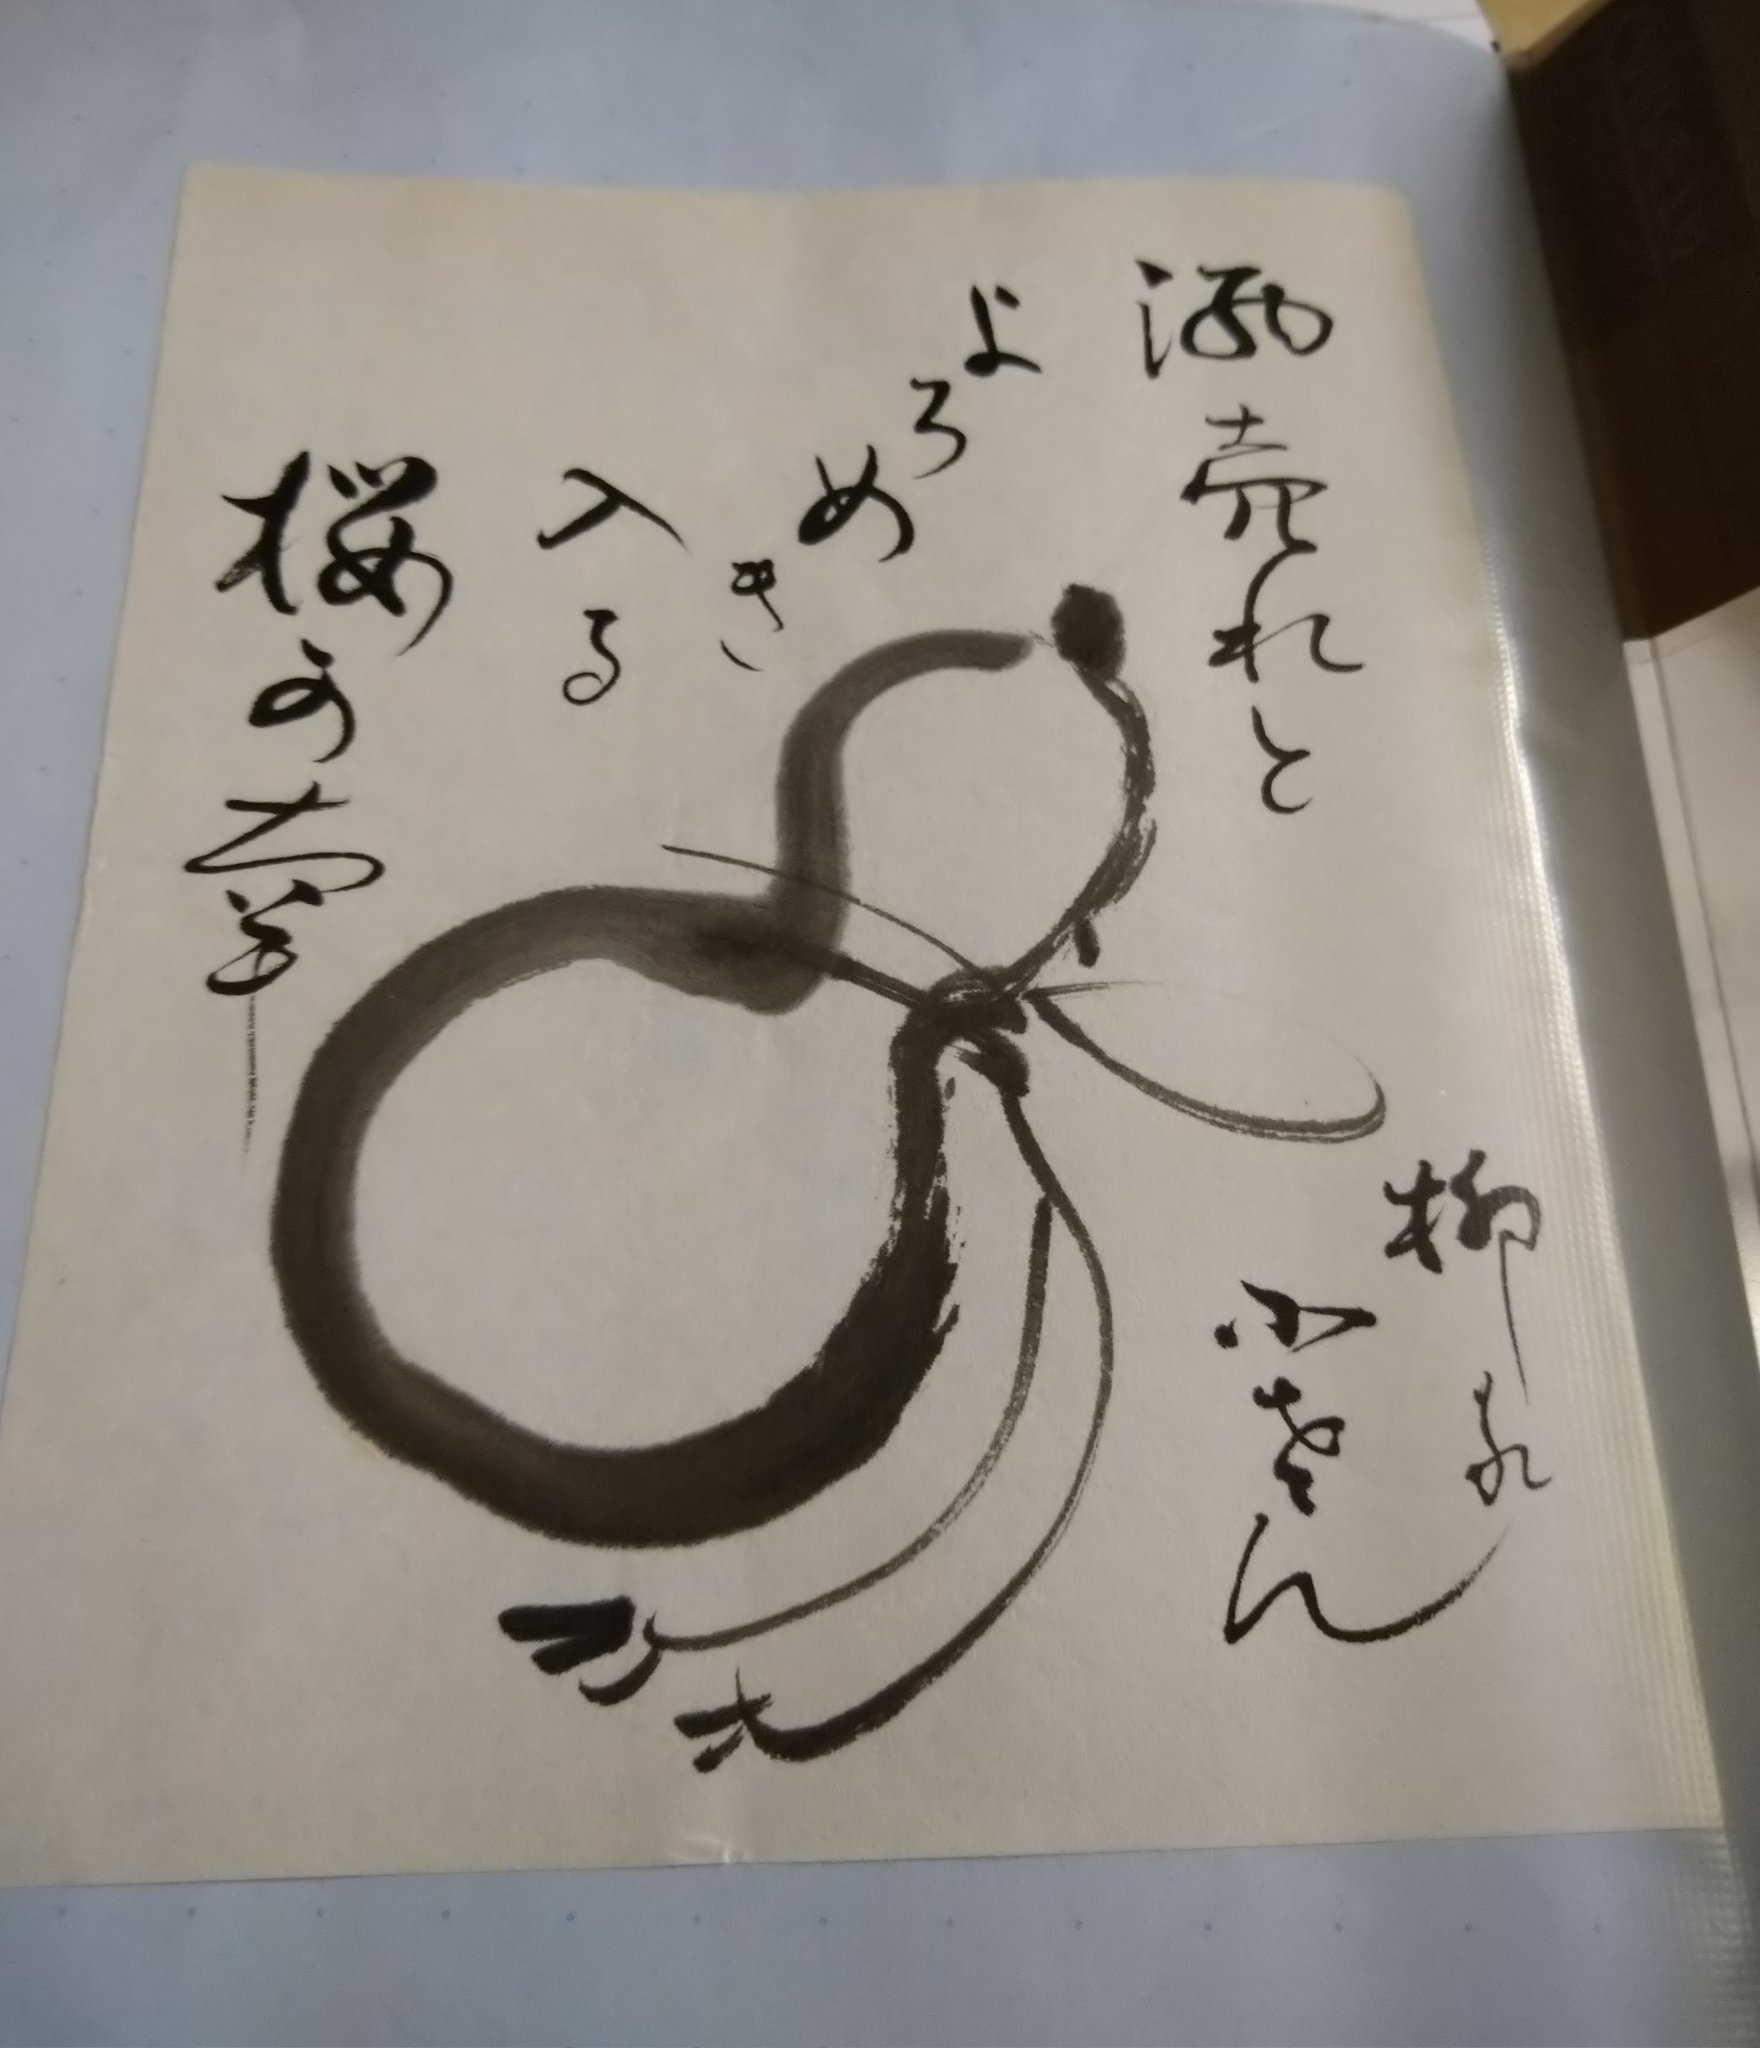 酒売れと
よろめき
入る
桜の
柳家
小せん